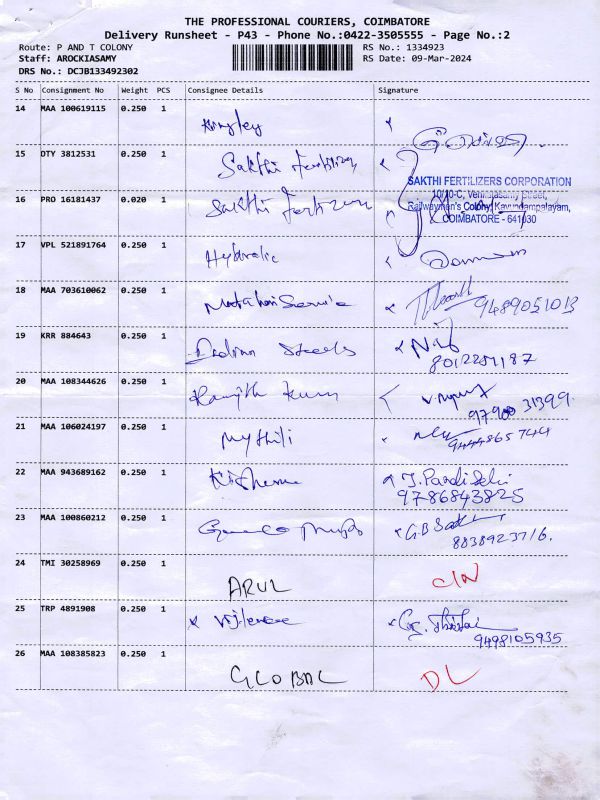 THE PROFESSIONAL COURIERS, COIMBATORE
Delivery Runsheet - P43 - Phone No.:0422-3505555 - Page No.:2
Route: P AND T COLONY RS No.: 1334923
Staff: AROCKIASAMY RS Date: 09-Mar-2024
DRS No.: DCJB133492302
S No Consignment No Weight PCS Consignee Details Signature
14 MAA 100619115 0.250 1
15 DTY 3812531 0.250 1 Sakthi Fertilizer
SAKTHI FERTILIZERS CORPORATION
16 PRO 16181437 0.020 1 Sakthi Fertilizer
Railwaymen's Colony, Kavundampalayam,
COIMBATORE - 641030
17 VPL 521891764 0.250 1 Hydralic
18 MAA 703610062 0.250 1 9489051013
19 KRR 884643 0.250 1 Steels
8012251187
20 MAA 108344626 0.250 1 Ranjith Kum
31399
21 MAA 106024197 0.250 1 Mythili
9444865744
22 MAA 943689162 0.250 1
9786843825
23 MAA 100860212 0.250 1
8838923716.
24 TMI 30258969 0.250 1 ARUL
25 TRP 4891908 0.250 1
9498105935
26 MAA 108385823 0.250 1 GLOBAL DL